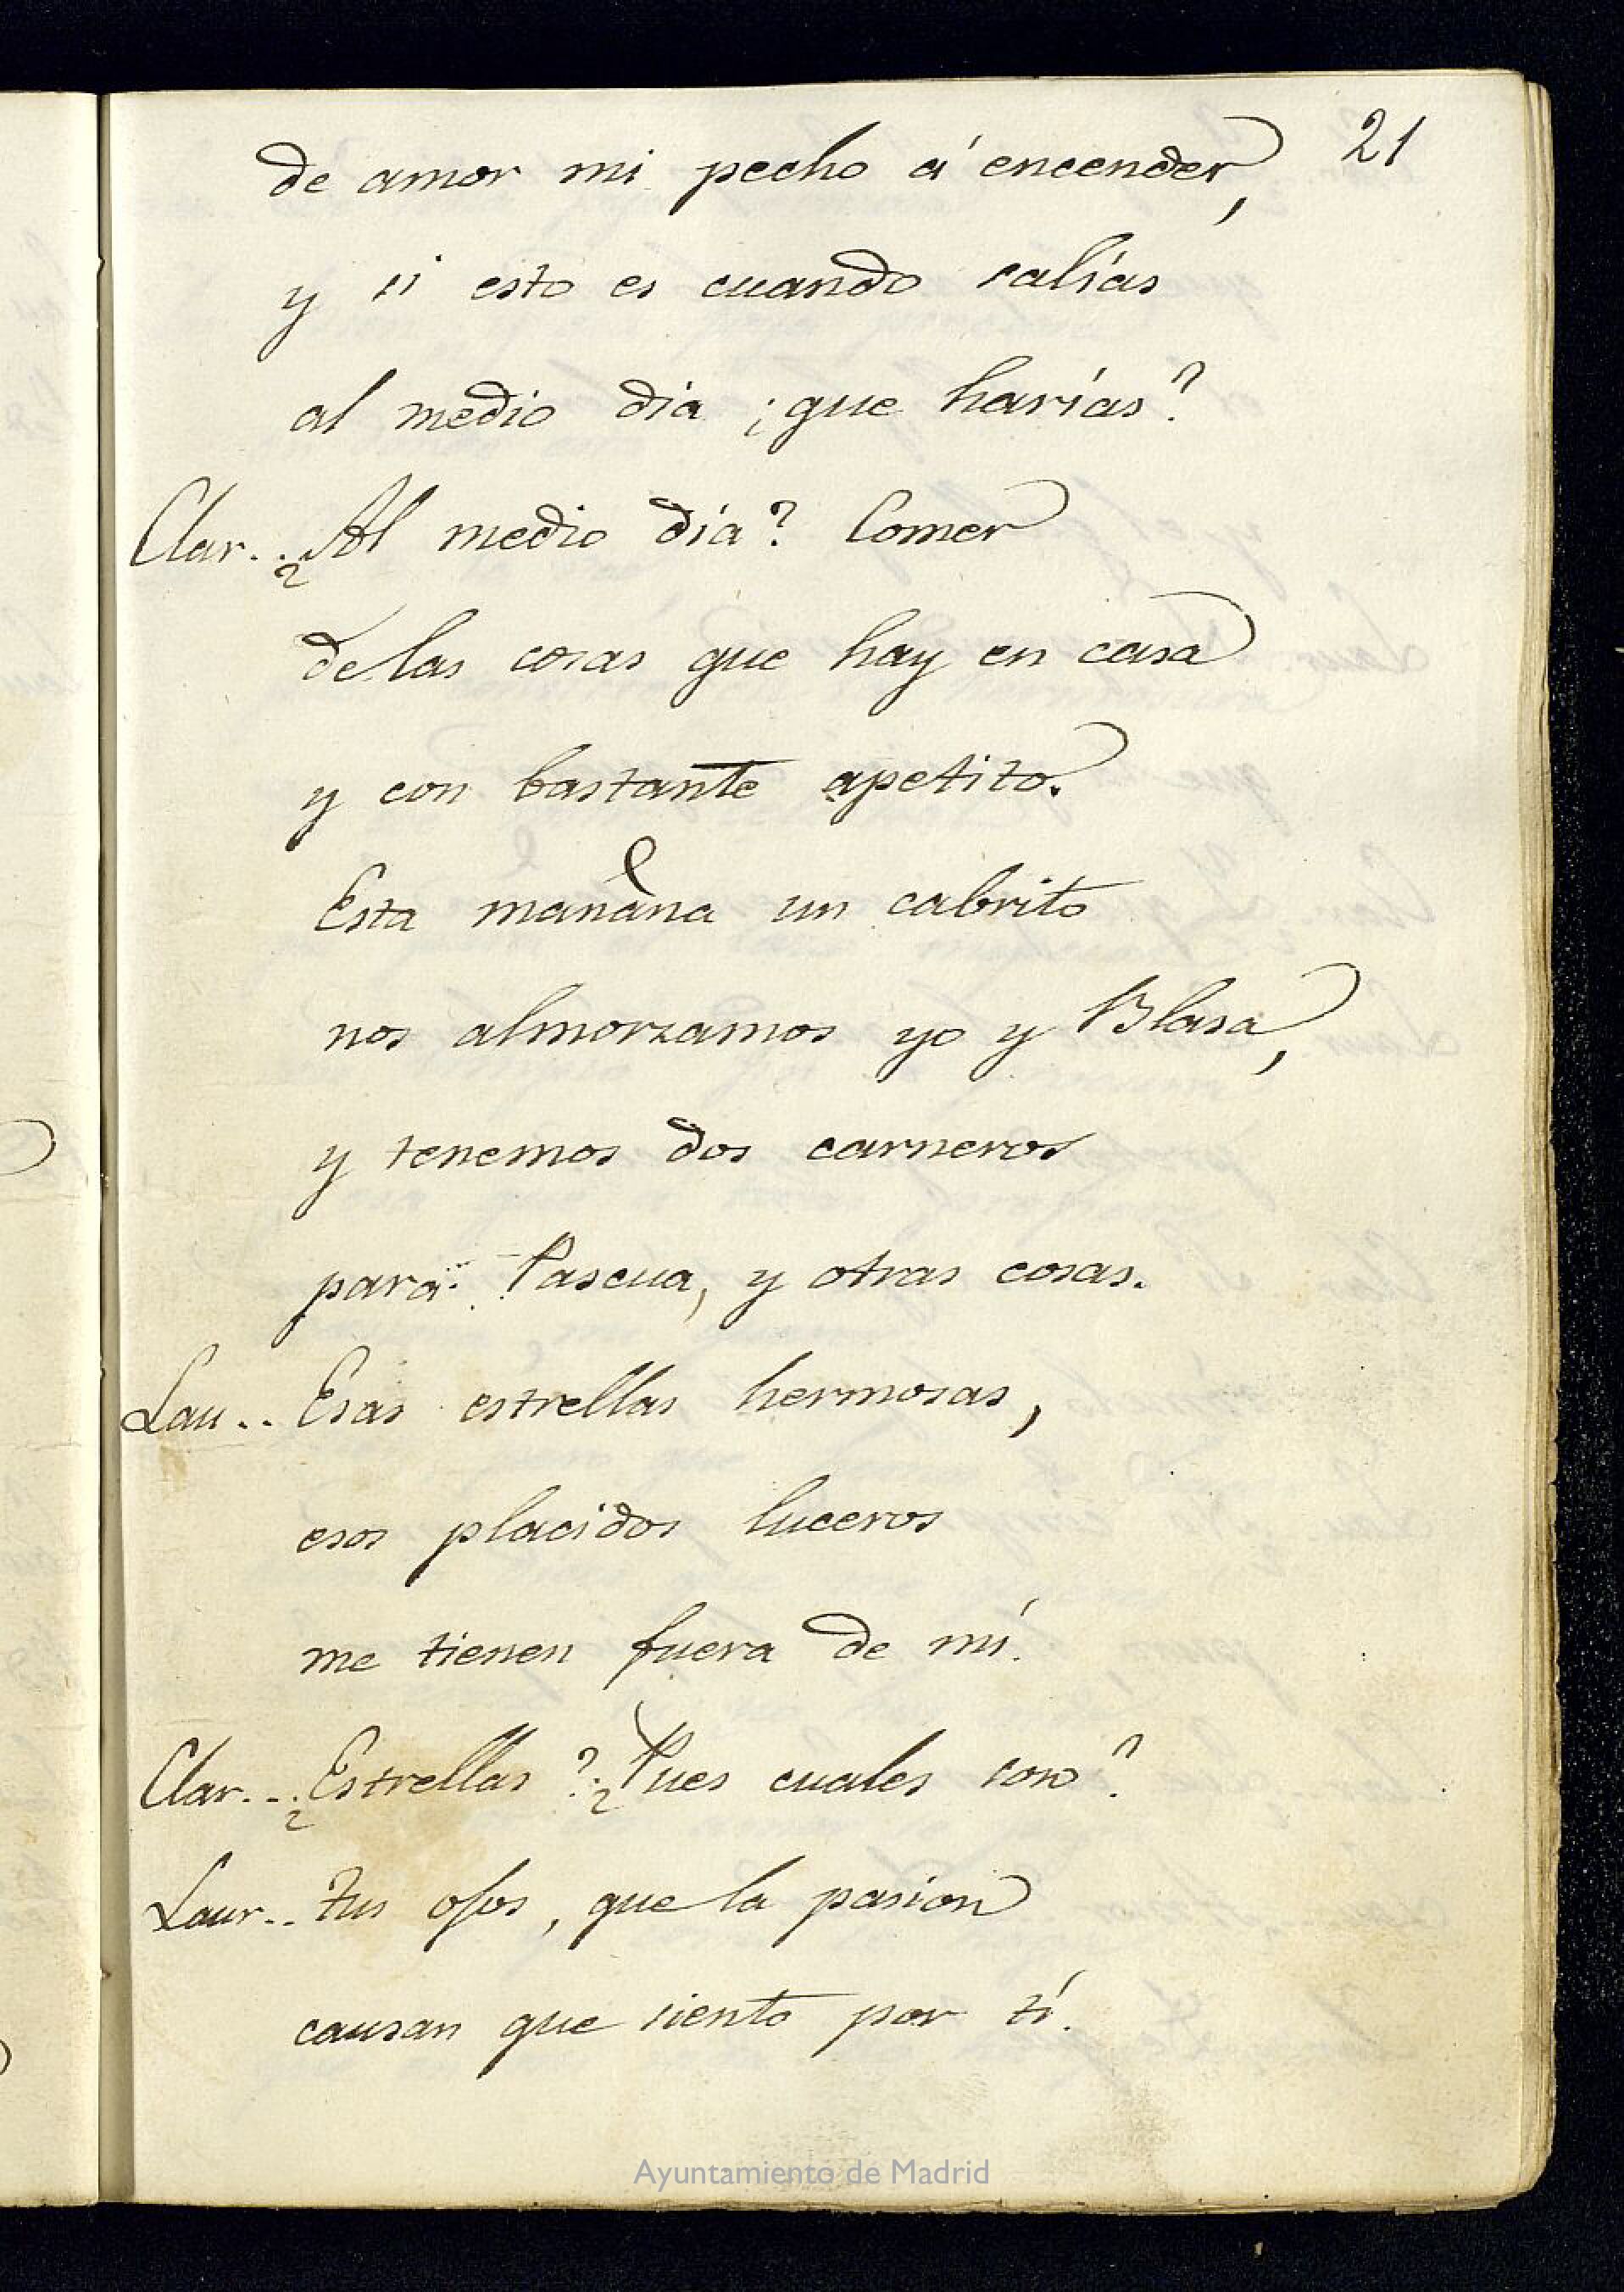 21
de amor mi pecho á encender,
y si esto es cuando salías
al medio dia ¿que harías?
Clar.. ¿Al medio día? Comer
de las cosas que hay en casa
y con bastante apetito.
Esta mañana un cabrito
nos almorzamos yo y Blasa,
y tenemos dos carneros
para Pascua, y otras cosas.
Lau.. Esas estrellas hermosas,
esos placidos luceros
me tienen fuera de mí.
Clar... ¿Estrellas? ¿Pues cuales son?
Laur.. Tus ojos, que la pasion
causan que siento por tí.
Ayuntamiento de Madrid